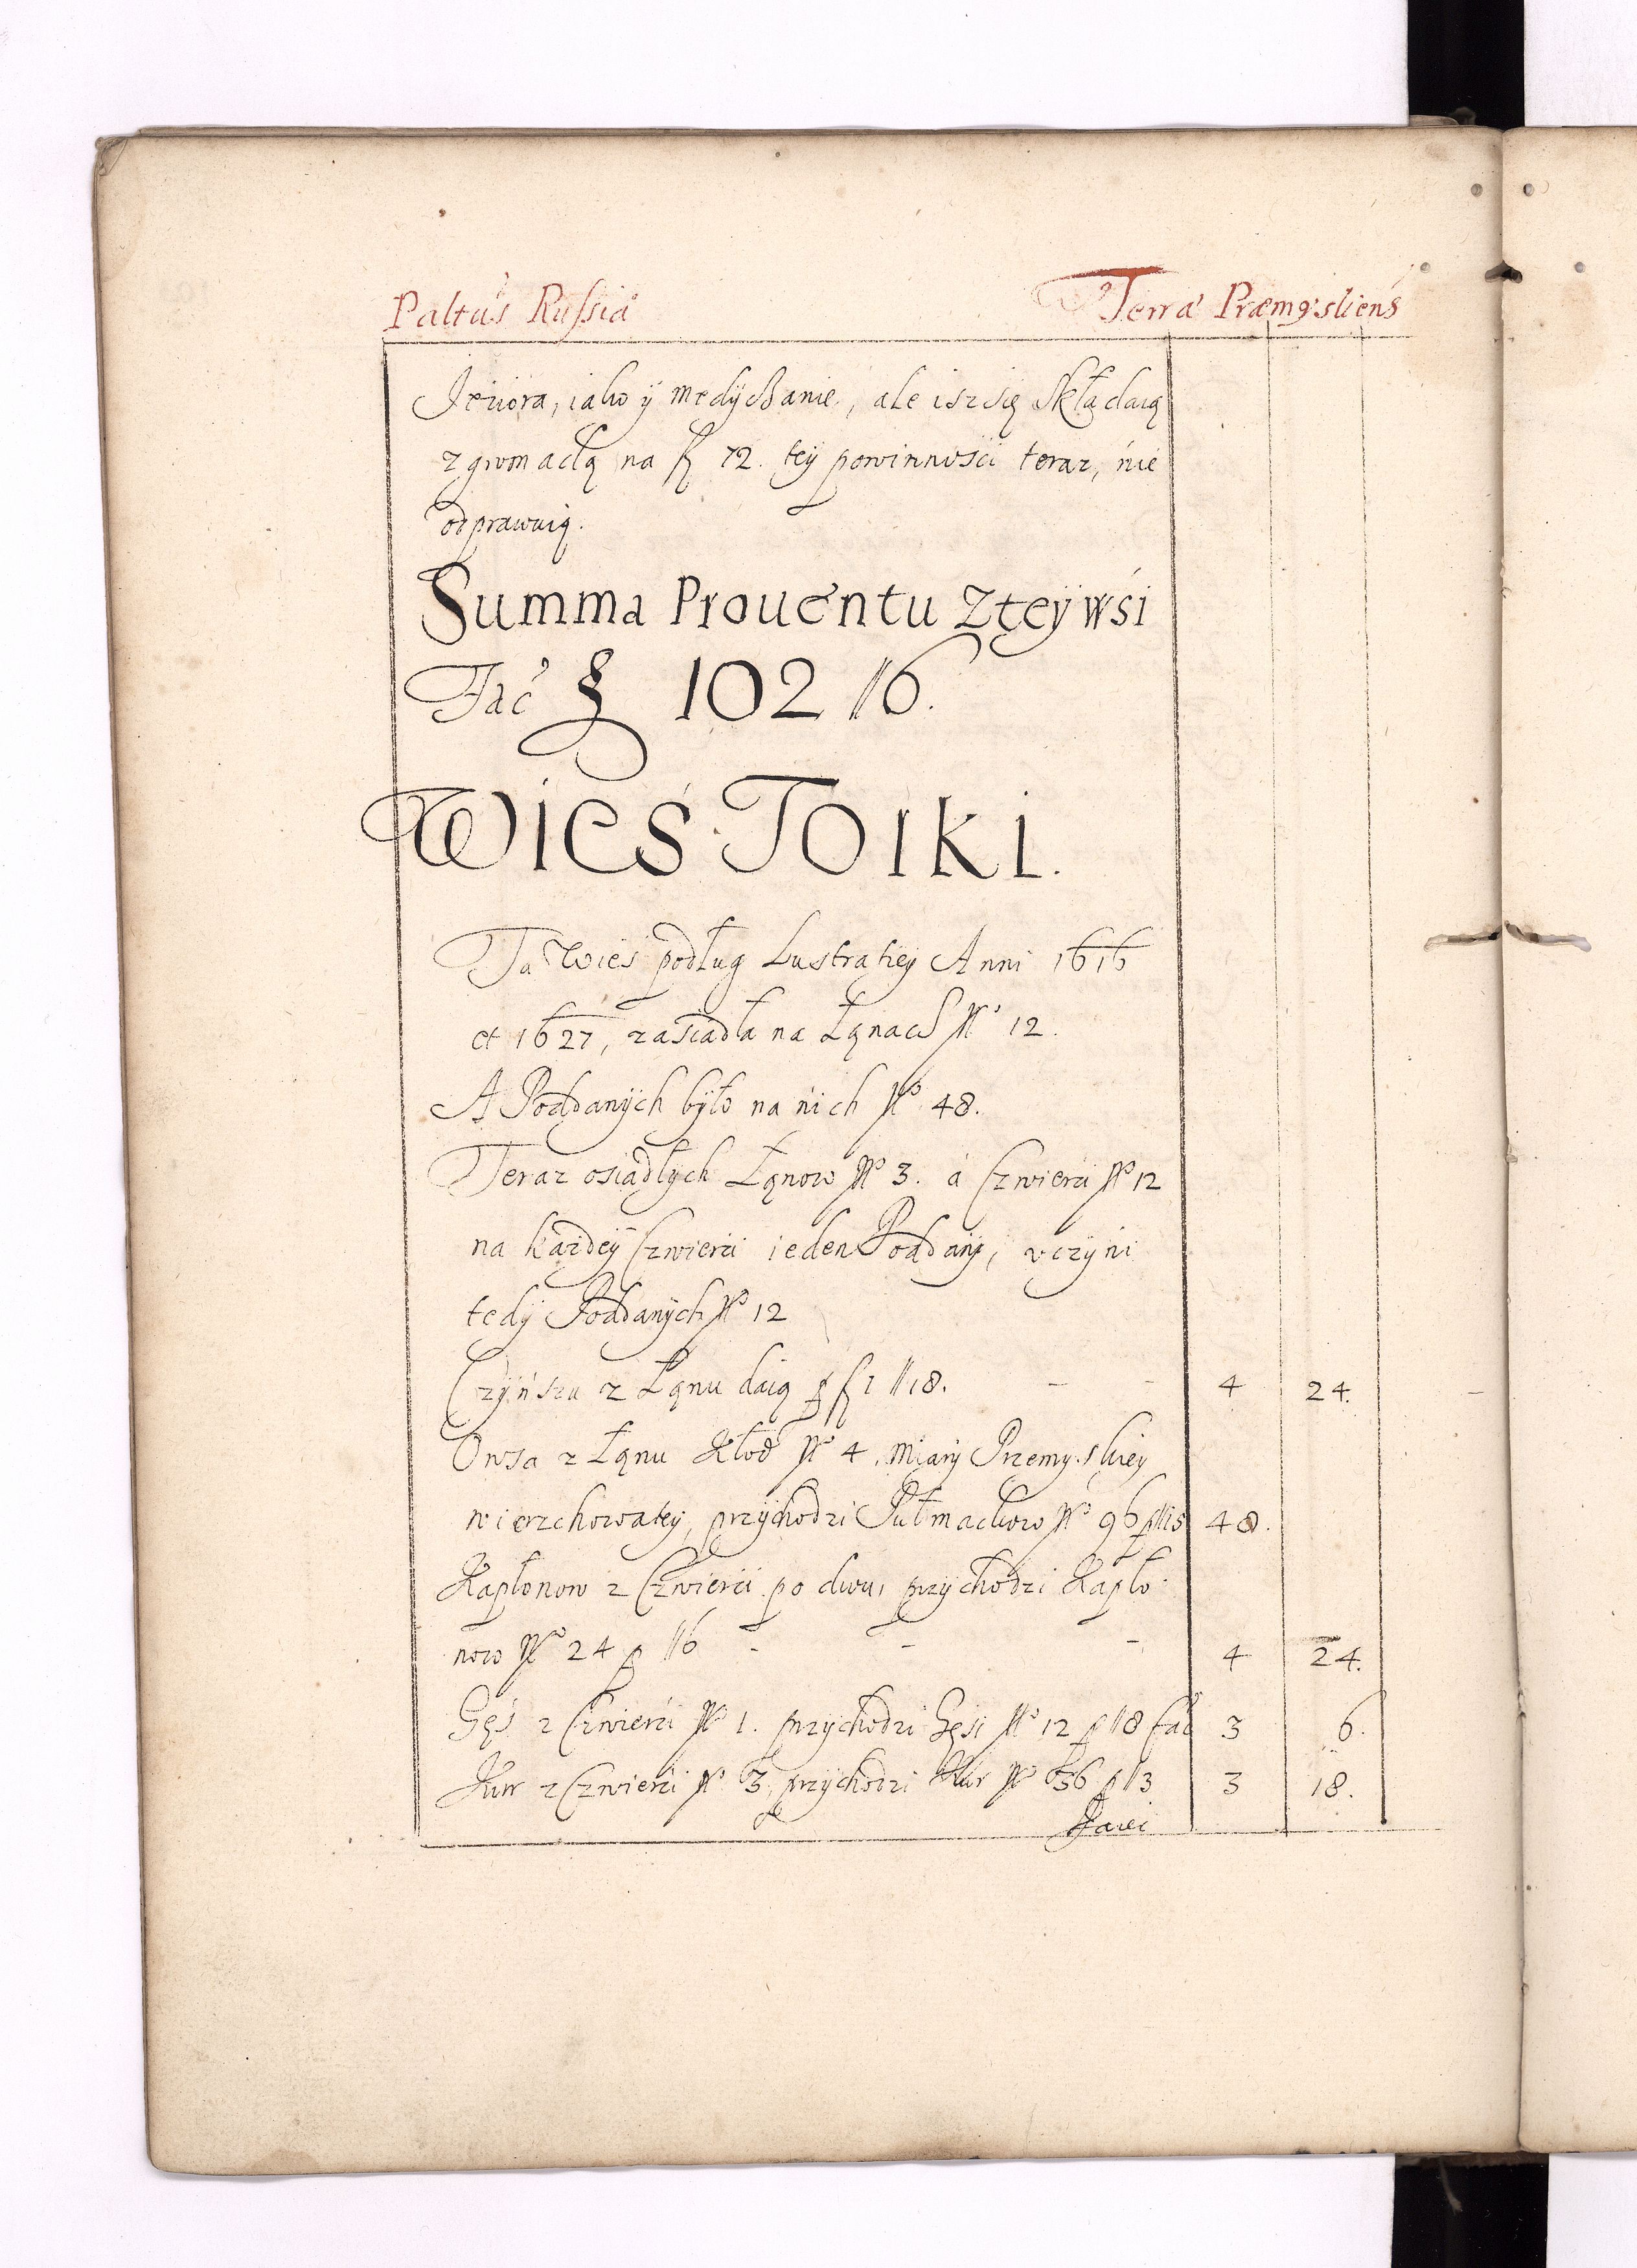 Paltus Russiæ Terræ Præmysliens
Jeziora, iako ÿ medyczanie, ale isz się składaią
z gromadą na fl 72. teÿ powinności teraz, nie
odprawuią.
Summa Prouentu z teÿ wśi
Fac 102 // 6.
Wieś Torki.
Ta Wieś podług Lustratiey Anni 1616
et 1627, zasiadła na Łanach No 12.
A Poddanÿch bÿło na nich No 48.
Teraz osiadłÿch Łanow No 3. á Czwierci No 12
na każdeÿ Czwierci ieden Poddanÿ, vczÿni
tedÿ Poddanÿch No 12
Czÿńszu z Łanu daią p fl 1 // 18. - - 4 24. -
Owsa z Łanu Kłod No 4. Miarÿ Przemyskiey
wierzchowatey, przÿchodzi Pułmackow No 96 p // 15 48.
Kapłonow z Czwierci po dwu, przÿchodzi Kapło-
now No 24 p // 6 - - - 4 24.
Gęś z Czwierci No 1. przÿchodzi Gęsi No 12 p // 8 fac 3 6.
Kur z Czwierci No 3, przÿchodzi Kur No 36 p // 3 3 18.